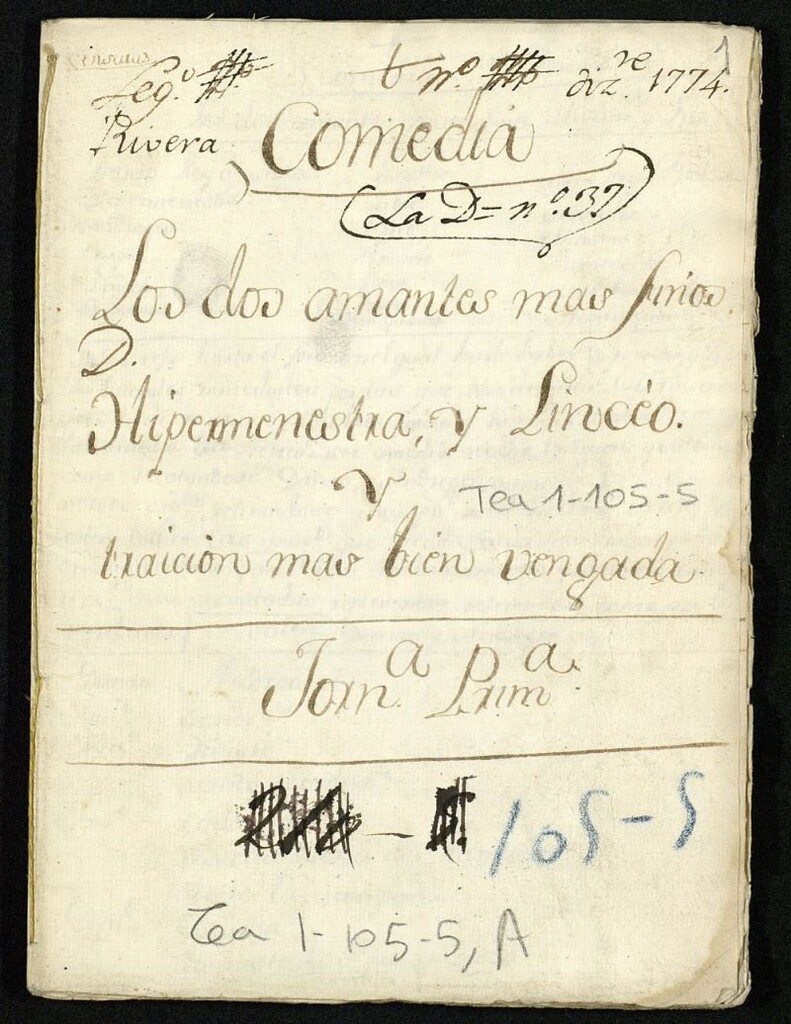 1
Leg.º nº diz.re 1774.
Rivera Comedia
(La D= nº.37)
Los dos amantes mas finos.
D.
Hipermenestra, y Linceo.
Y
traicion mas bien vengada.
Jorn.a Prim.a
105-5
Tea 1-105-5
Tea 1-105-5, A